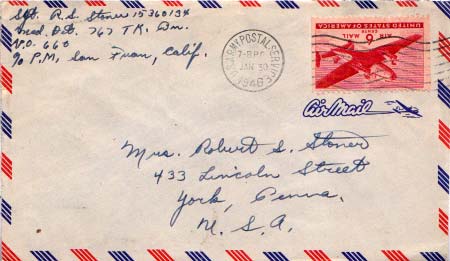 Sgt. R. S. Stoner 15360134
Med. Det. 767 TK. Bn.
660
c/o P.M., San Fran, Calif.
U.S. ARMY POSTAL SERVICE
JAN 30
1946
UNITED STATES OF AMERICA
AIR 6¢ MAIL
Air Mail
Mrs. Robert S. Stoner
433 Lincoln Street
York, Penna.
U. S. A.